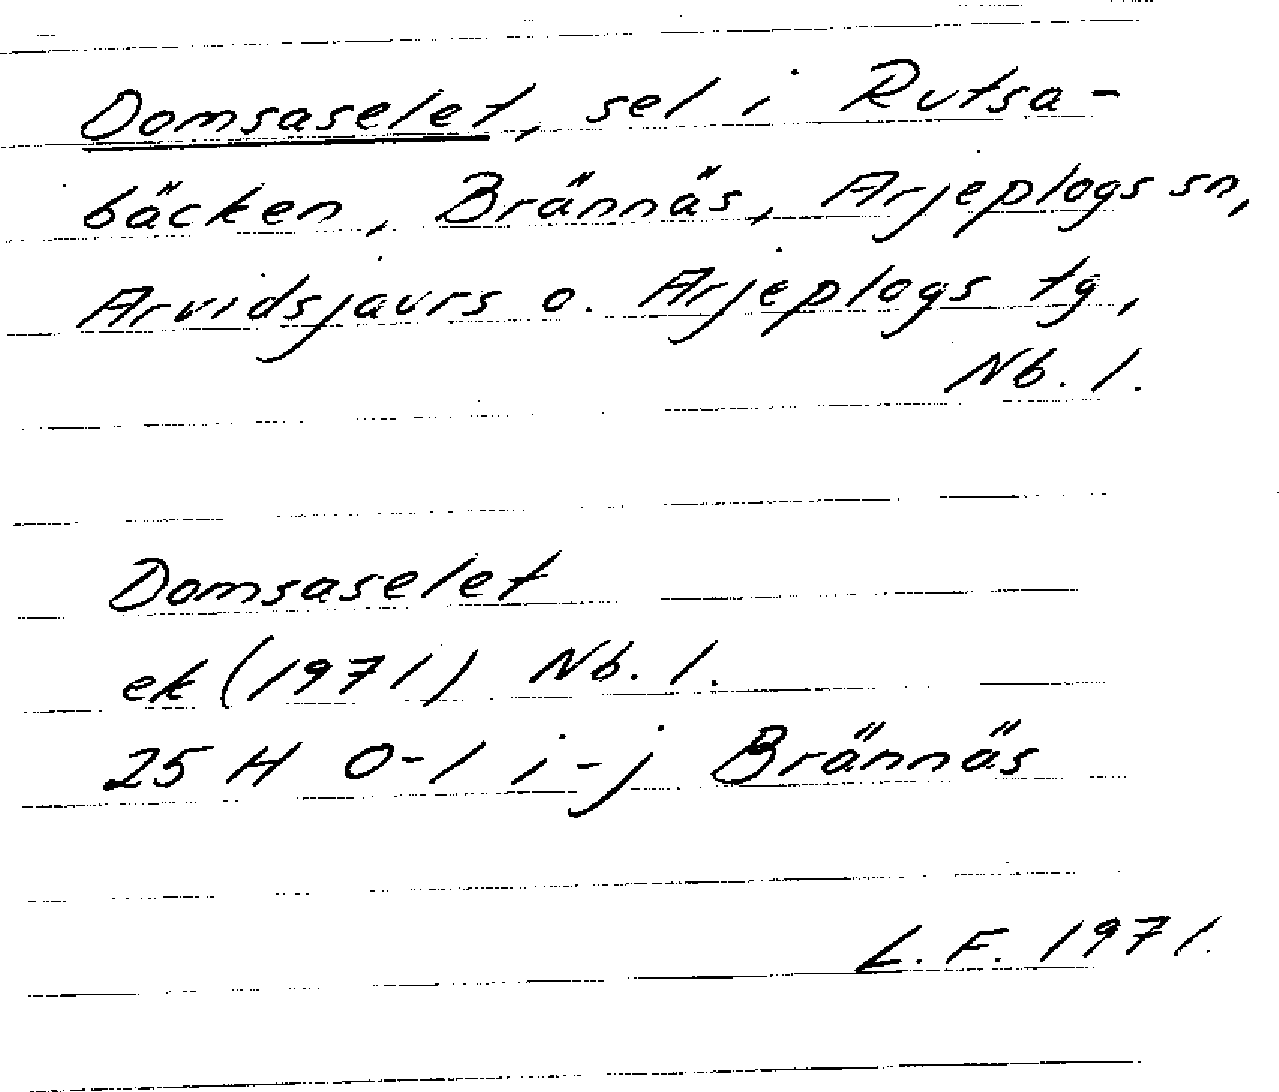 Domsaselet, sel i Rutsa-
bäcken, Brännäs, Arjeplogs sn,
Arvidsjaurs o. Arjeplogs tg,
Nb. l.
Domsaselet
ek (1971) Nb. l.
25 H 0-1 i-j Brännäs
L. F. 1971.